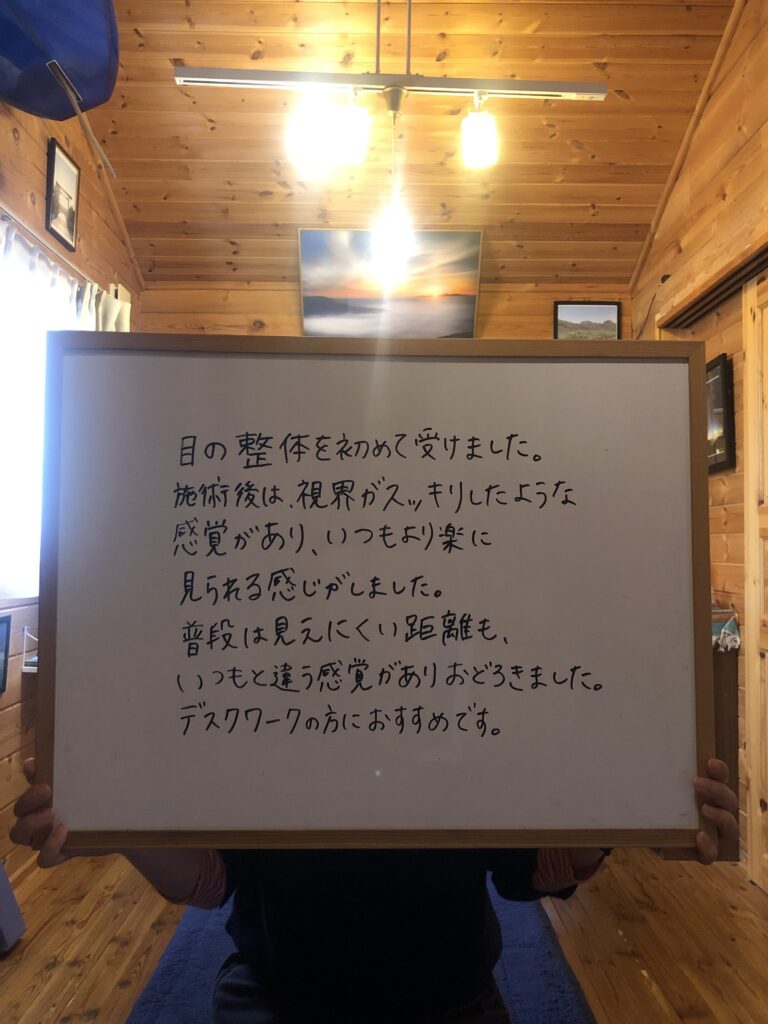 目の整体を初めて受けました。
施術後は、視界がスッキリしたような
感覚があり、いつもより楽に
見られる感じがしました。
普段は見えにくい距離も、
いつもと違う感覚がありおどろきました。
デスクワークの方におすすめです。